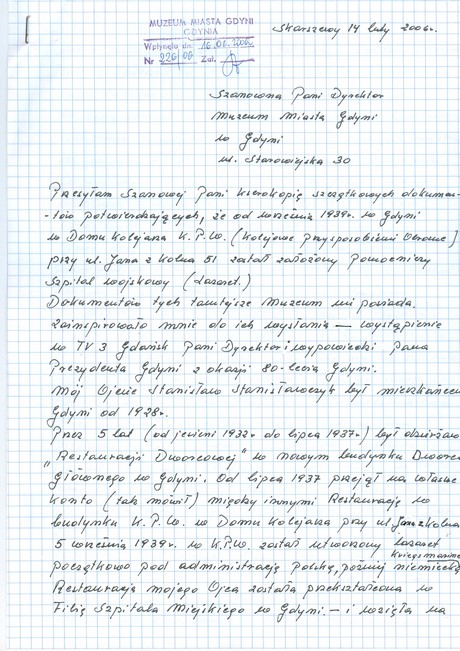 MUZEUM MIASTA GDYNI
GDYNIA
Wpłynęło dn. 16.02.2006
Nr 226/06 Zał.
Skarszewy 14 luty 2006r.
Szanowna Pani Dyrektor
Muzeum Miasta Gdyni
w Gdyni
ul. Starowiejska 30
Przesyłam Szanownej Pani kserokopię szczątkowych dokumen-
-tów potwierdzających, że od września 1939r. w Gdyni
w Domu Kolejarza K.P.W. (Kolejowe Przysposobienie Obronne)
przy ul. Jana z Kolna 51 został założony Pomocniczy
Szpital wojskowy (Lazaret.)
Dokumentów tych tamtejsze Muzeum nie posiada.
Zainspirowało mnie do ich wysłania — wystąpienie
w TV 3 Gdańsk Pani Dyrektor i wypowiedzi Pana
Prezydenta Gdyni z okazji 80-lecia Gdyni.
Mój Ojciec Stanisław Stanisławczyk był mieszkańcem
Gdyni od 1928r.
Przez 5 lat (od jesieni 1932r do lipca 1937r) był dzierżawc
"Restauracji Dworcowej" w nowym budynku Dworca
Głównego w Gdyni. Od lipca 1937 przejął na własne
konto (tak mówił) między innymi Restaurację w
budynku K.P.W. w Domu Kolejarza przy ul. Jana z Kolna
5 września 1939r. w K.P.W. został utworzony Lazaret
początkowo pod administracją Polską, później niemiecką
Restauracja mojego Ojca została przekształcona w
Filię Szpitala Miejskiego w Gdyni. — i wzięła na